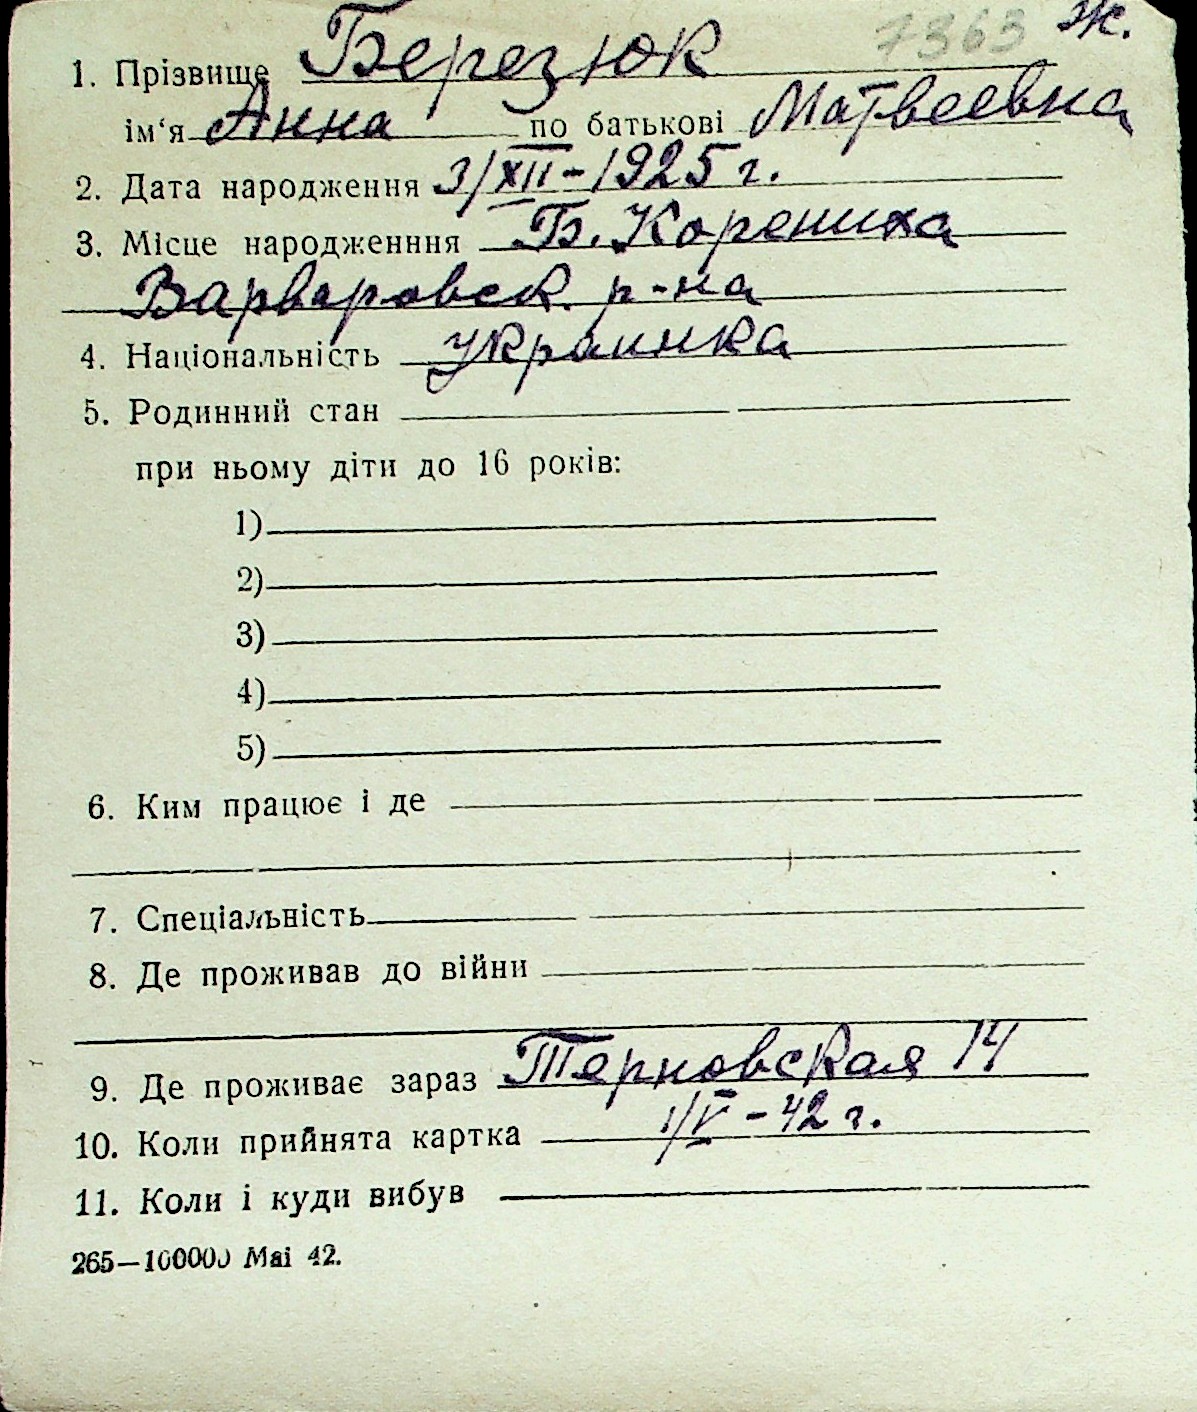 7363 Ж.
1. Прізвище Березюк
ім‘я Анна по батькові Матвеевна
2. Дата народження 3/XII-1925 г.
3. Місце народженння Б. Корениха
Варваровск. р-на
4. Національність украинка
5. Родинний стан
при ньому діти до 16 років:
1)
2)
3)
4)
5)
6. Ким працює і де
7. Спеціальність
8. Де проживав до війни
9. Де проживає зараз Терновская 14
10. Коли прийнята картка 1/V-42 г.
11. Коли і куди вибув
265—100000 Mai 42.